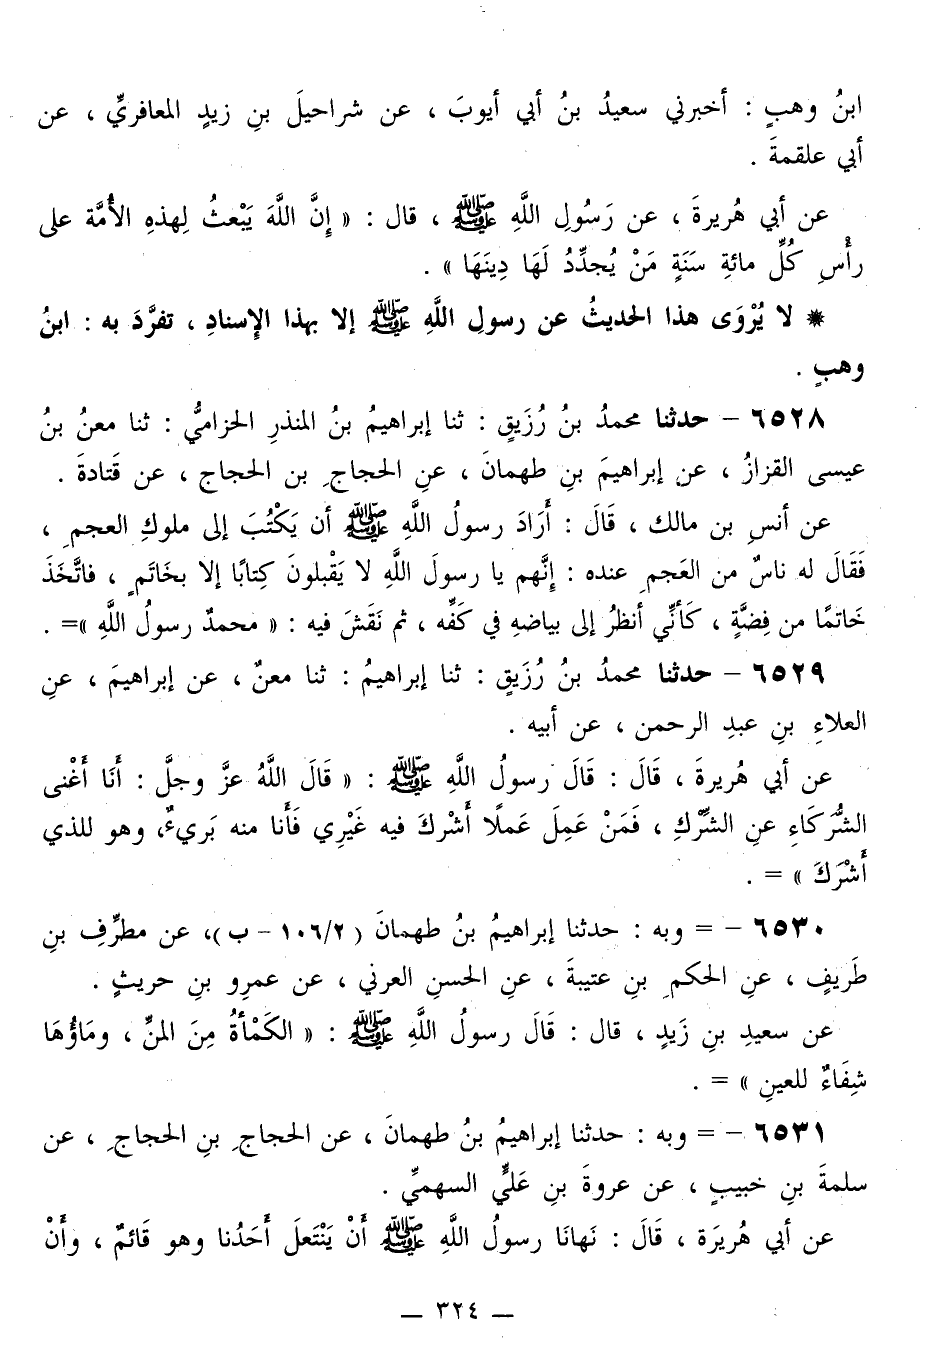 ابنُ وهبٍ : أخبرني سعيدُ بنُ أبي أيوبَ ، عن شراحيلَ بنِ زيدٍ المعافريِّ ، عن
أبي علقمةَ .
عن أبي هُريرةَ ، عن رَسُولِ اللَّهِ ﷺ ، قال : « إِنَّ اللَّهَ يَبْعثُ لِهذهِ الأُمَّة على
رأْسِ كُلِّ مائةِ سَنَةٍ مَنْ يُجدِّدُ لَهَا دِينَهَا » .
* لا يُرْوَى هذا الحديثُ عن رسولِ اللَّهِ ﷺ إلا بهذا الإسنادِ ، تفرَّدَ به : ابنُ
وهبٍ .
٦٥٢٨ – حدثنا محمدُ بنُ رُزَيقٍ : ثنا إبراهيمُ بنُ المنذرِ الحزاميُّ : ثنا معنُ بنُ
عيسى القزازُ ، عن إبراهيمَ بنِ طهمانَ ، عنِ الحجاجِ بن الحجاج ، عن قَتادةَ .
عن أنسِ بن مالك ، قَالَ : أَرَادَ رسولُ اللَّهِ ﷺ أن يَكْتُبَ إلى ملوكِ العجمِ ،
فَقَالَ له ناسٌ من العَجمِ عنده : إِنَّهم يا رسولَ اللَّهِ لا يَقْبلونَ كِتابًا إلا بخَاتَمٍ ، فاتَّخَذَ
خَاتمًا من فِضَّةٍ ، كَأنِّي أنظرُ إلى بياضهِ في كَفِّه ، ثم نَقَشَ فيه : « محمدٌ رسولُ اللَّهِ »= .
٦٥٢٩ – حدثنا محمدُ بنُ رُزَيقٍ : ثنا إبراهيمُ : ثنا معنٌ ، عن إبراهيمَ ، عنِ
العلاءِ بنِ عبدِ الرحمن ، عن أبيه .
عن أبي هُريرةَ ، قَالَ : قَالَ رسولُ اللَّهِ ﷺ : « قَالَ اللَّهُ عزَّ وجلَّ : أَنَا أَغْنى
الشُّرَكَاءِ عنِ الشِّرْكِ ، فَمَنْ عَمِلَ عَملًا أَشْركَ فيه غَيْرِي فَأَنا منه بَريءٌ، وهو للذي
أَشْرَكَ » = .
٦٥٣٠ – = وبه : حدثنا إبراهيمُ بنُ طهمانَ ( ١٠٦/٢ – ب )، عن مطرِّفِ بنِ
طَريفٍ ، عنِ الحكمِ بنِ عتيبةَ ، عنِ الحسنِ العرني ، عن عمرِو بنِ حريثٍ .
عن سعيدِ بنِ زَيدٍ ، قال : قَالَ رسولُ اللَّهِ ﷺ : « الكَمْأةُ مِنَ المنِّ ، ومَاؤُهَا
شِفَاءٌ للعينِ » = .
٦٥٣١ – = وبه : حدثنا إبراهيمُ بنُ طهمانَ ، عن الحجاجِ بنِ الحجاجِ ، عن
سلمةَ بنِ خبيبٍ ، عن عروةَ بنِ عَليٍّ السهميِّ .
عن أبي هُريَرة ، قَالَ : نَهانَا رسولُ اللَّهِ ﷺ أَنْ يَنْتَعلَ أَحَدُنا وهو قَائمٌ ، وأَنْ
— ٣٢٤ —